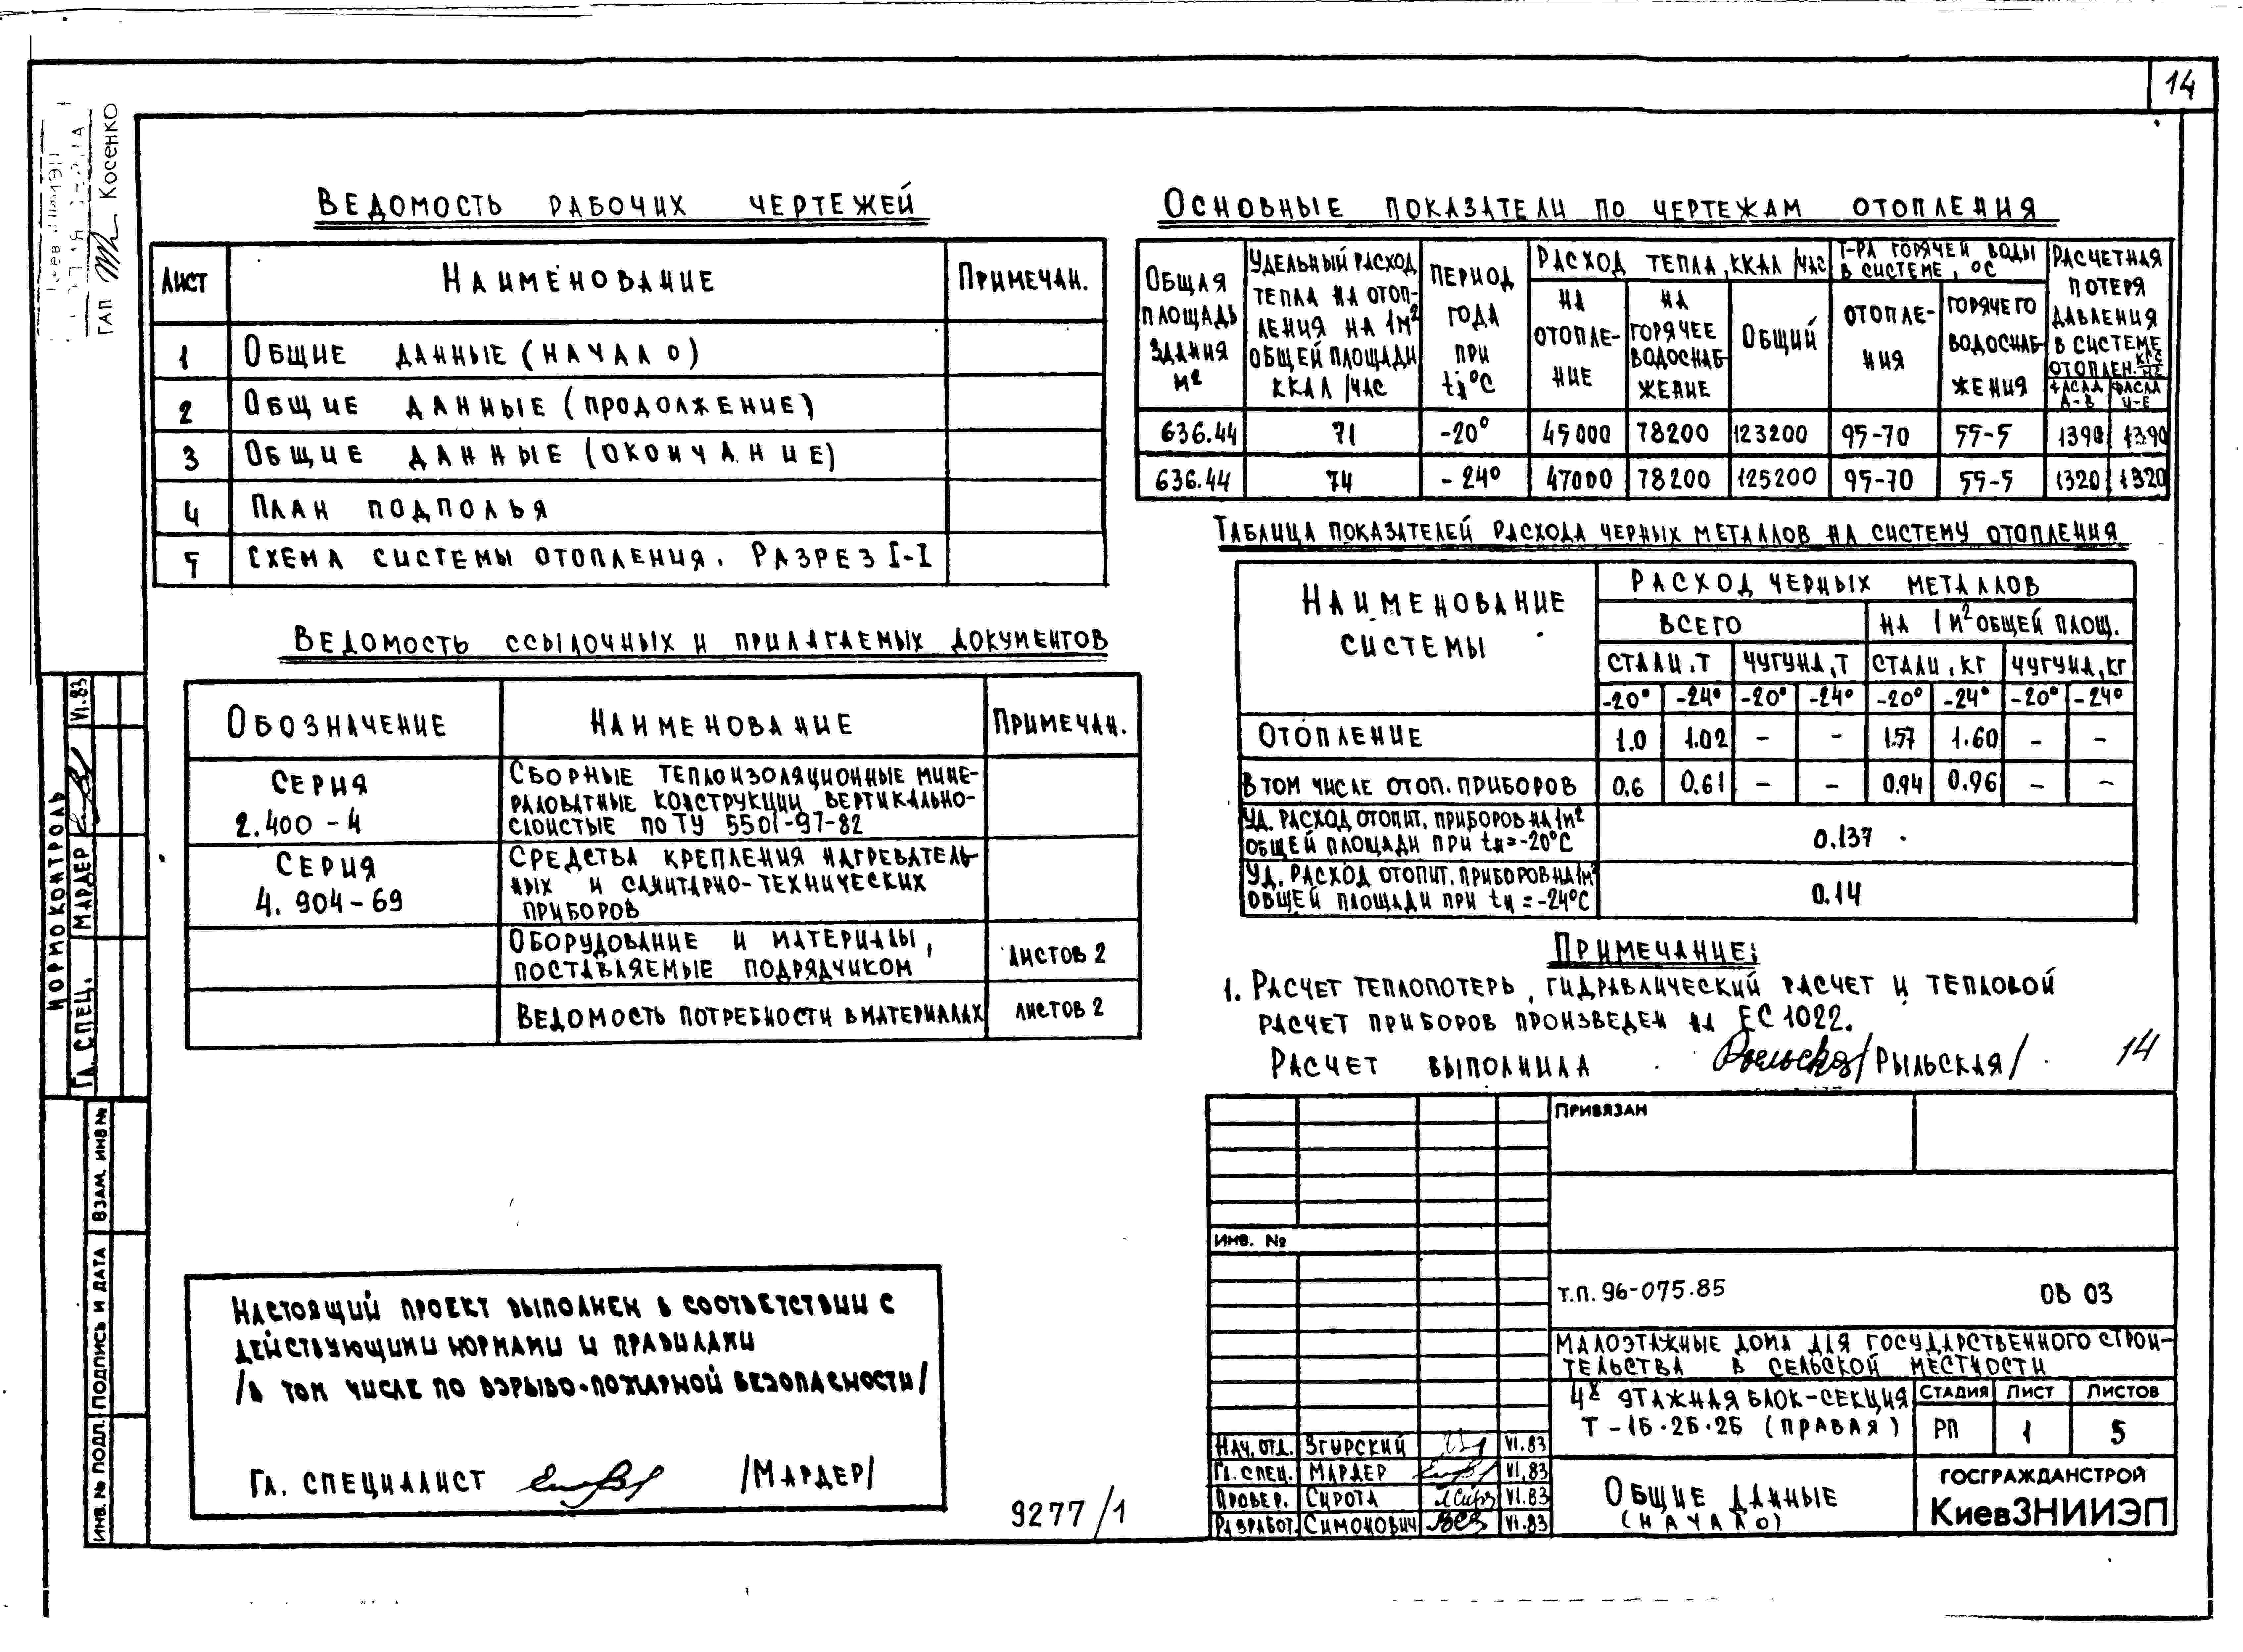 14
ГАП Косенко
Ведомость рабочих чертежей
Лист Наименование Примечан.
1 Общие данные (начало)
2 Общие данные (продолжение)
3 Общие данные (окончание)
4 План подполья
5 Схема системы отопления. Разрез I-I
Ведомость ссылочных и прилагаемых документов
Обозначение Наименование Примечан.
Серия 2.400-4
Сборные теплоизоляционные мине-
раловатные конструкции вертикально-
слоистые по ТУ 5501-97-82
Серия 4.904-69
Средства крепления нагреватель-
ных и санитарно-технических
приборов
Оборудование и материалы,
поставляемые подрядчиком
Листов 2
Ведомость потребности в материалах Листов 2
Настоящий проект выполнен в соответствии с
действующими нормами и правилами
/в том числе по взрыво-пожарной безопасности/
Гл. специалист /Мардер/
9277/1
Нормоконтроль
Гл. спец. Мардер VI.83
Инв. № подл. Подпись и дата Взам. инв №
Основные показатели по чертежам отопления
Общая
площадь
здания
м²
Удельный расход
тепла на отоп-
ления на 1м²
общей площади
ккал/час
Период
года
при
tн°С
Расход тепла, ккал/час
на
отопле-
ние
на
горячее
водоснаб-
жение
Общий
Т-ра горячей воды
в системе, °С
Отопле-
ния
Горячего
водоснаб-
жения
Расчетная
потеря
давления
в системе
отоплен. кгс/м²
фасад А-В
фасад И-Е
636.44 71 -20° 45000 78200 123200 95-70 55-5 1390 1390
636.44 74 -24° 47000 78200 125200 95-70 55-5 1320 1320
Таблица показателей расхода черных металлов на систему отопления
Наименование
системы
Расход черных металлов
Всего На 1м² общей площ.
Стали, т Чугуна, т Стали, кг Чугуна, кг
-20° -24° -20° -24° -20° -24° -20° -24°
Отопление 1.0 1.02 - - 1.57 1.60 - -
В том числе отоп. приборов 0.6 0.61 - - 0.94 0.96 - -
Уд. расход отопит. приборов на 1м²
общей площади при tн=-20°С
0.137
Уд. расход отопит. приборов на 1м²
общей площади при tн=-24°С
0.14
Примечание:
1. Расчет теплопотерь, гидравлический расчет и тепловой
расчет приборов произведен на ЕС 1022.
Расчет выполнила /Рыльская/
14
Привязан
Инв. №
т.п. 96-075.85 ОВ 03
Малоэтажные дома для государственного строи-
тельства в сельской местности
4х этажная блок-секция
Т-1Б.2Б.2Б (правая)
Стадия Лист Листов
РП 1 5
Нач. отд. Згурский VI.83
Гл. спец. Мардер VI.83
Провер. Сирота VI.83
Разработ. Симонович VI.83
Общие данные
(начало)
ГОСГРАЖДАНСТРОЙ
КиевЗНИИЭП